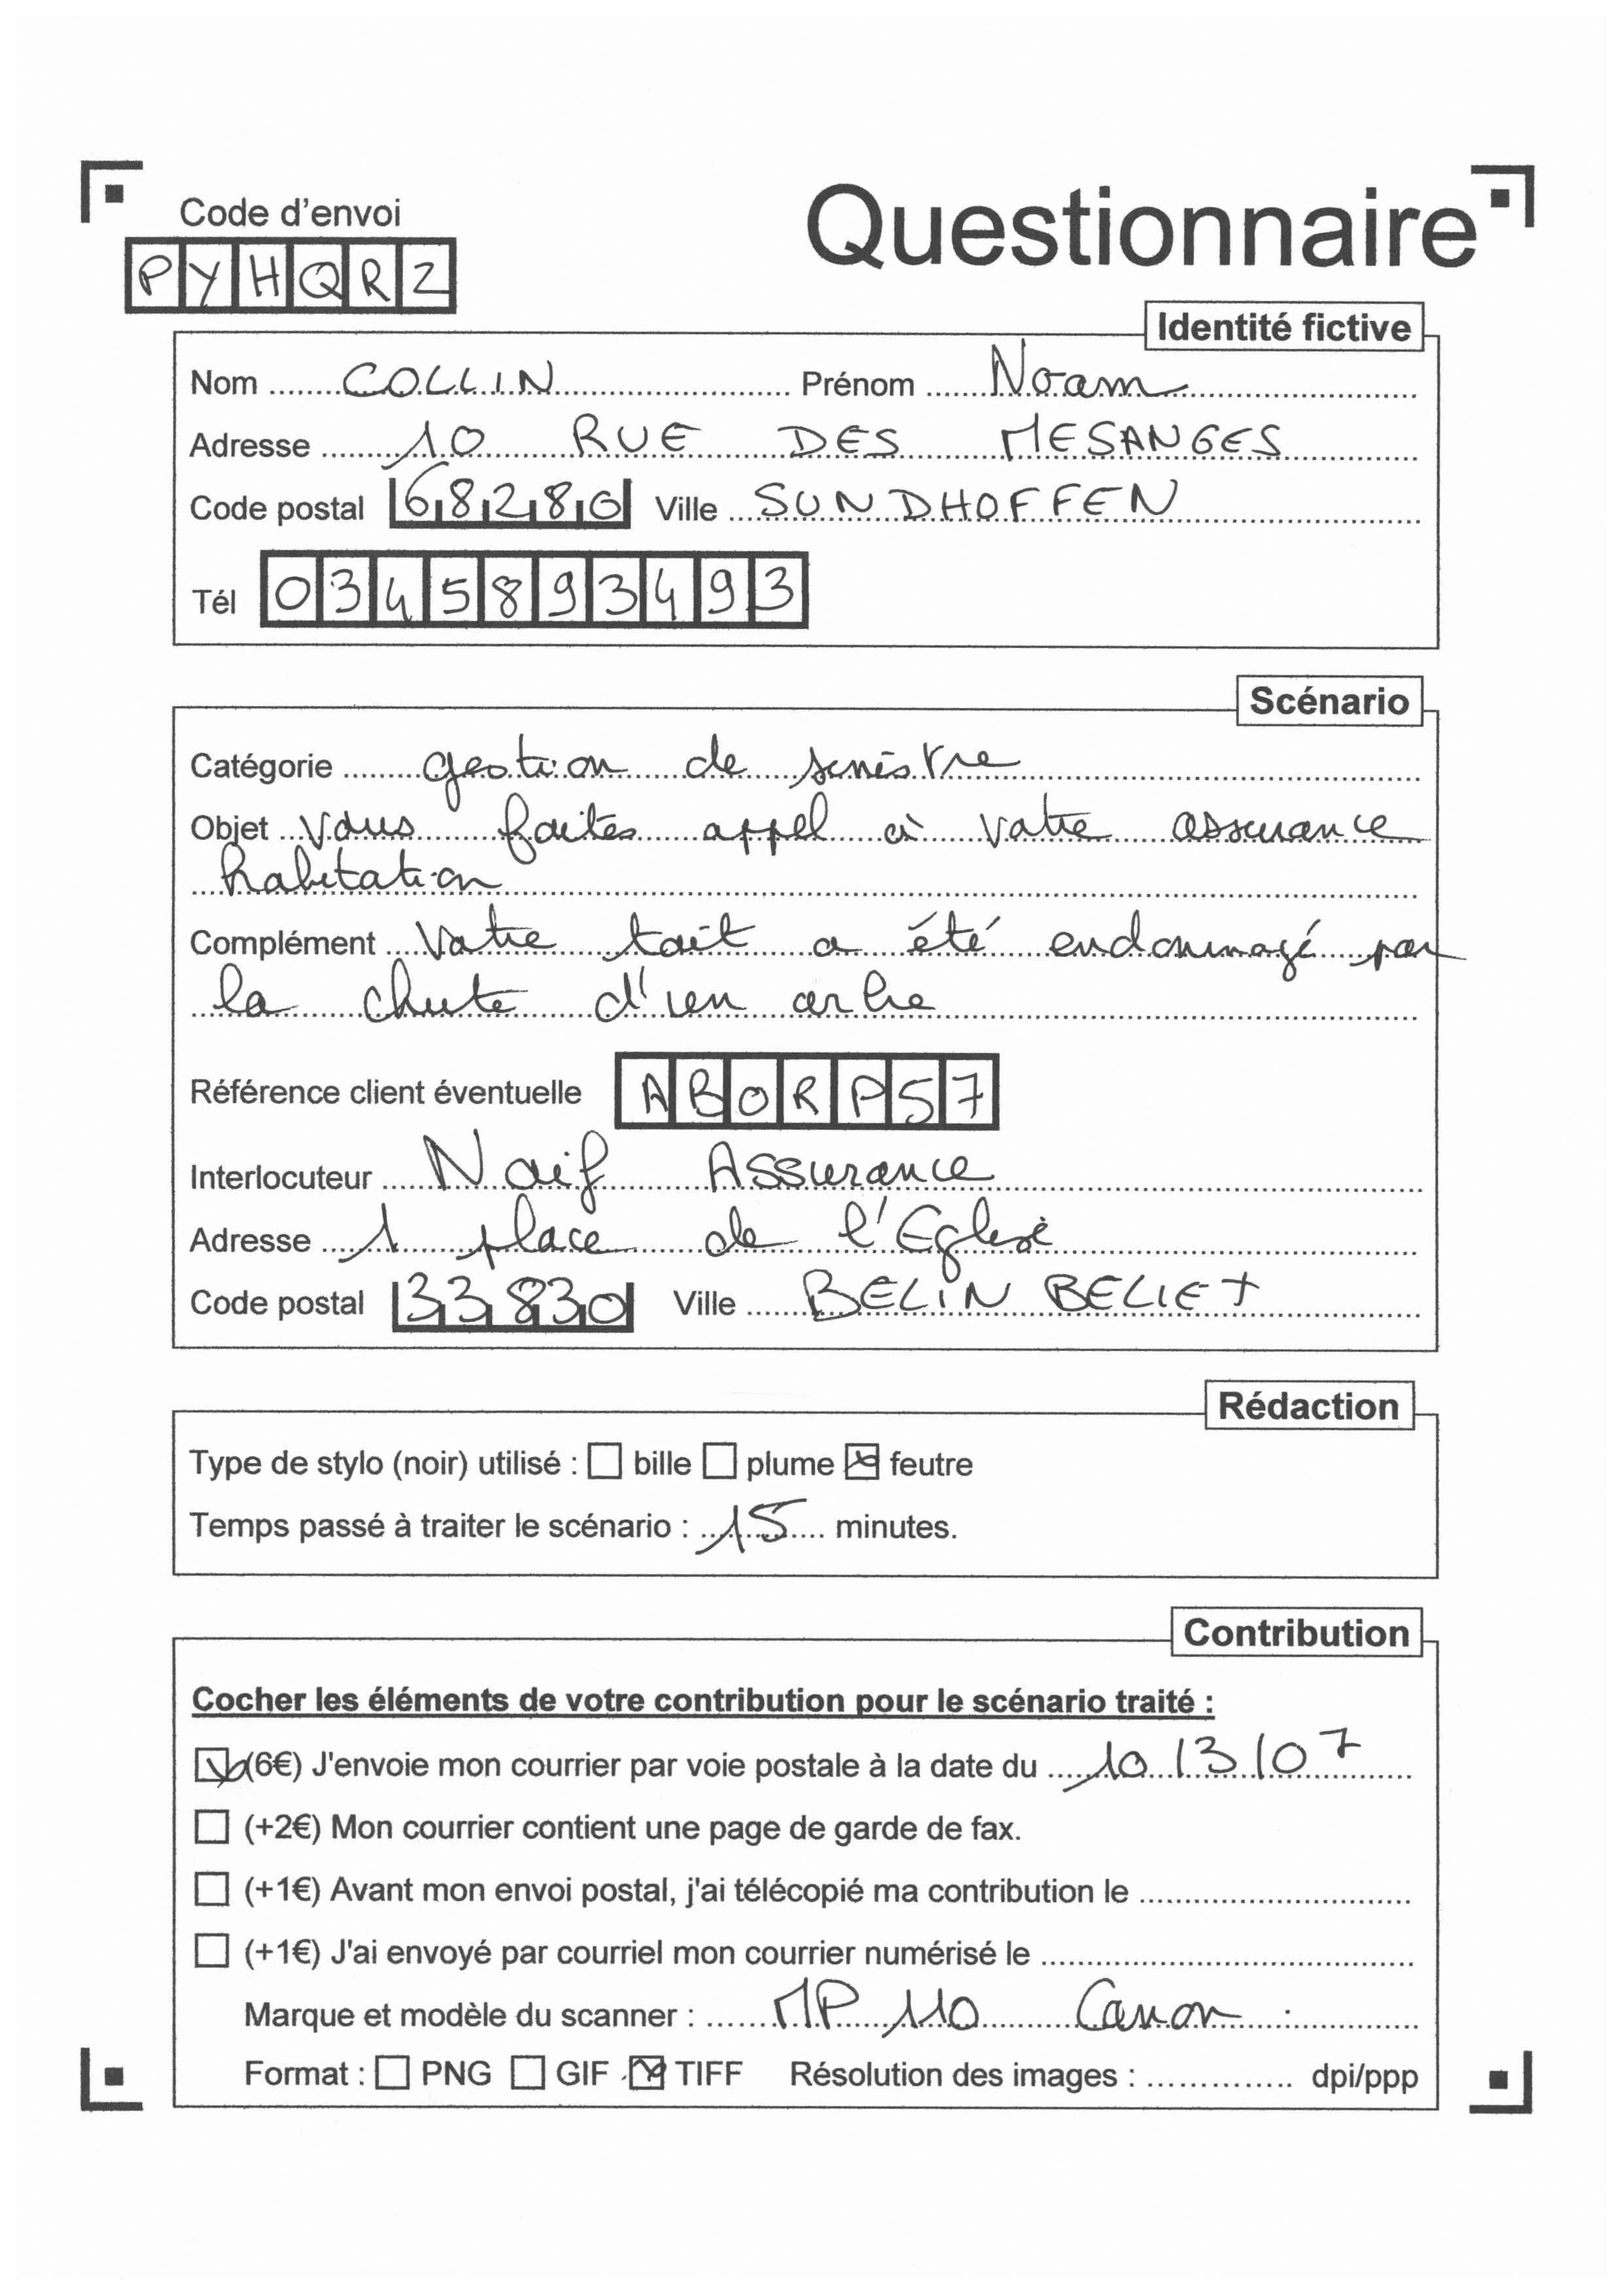 Code d'envoi
Questionnaire
PYHQRZ
Identité fictive
Nom COLLIN Prénom Noam
Adresse 10 RUE DES MESANGES
Code postal 68280 Ville SUNDHOFFEN
Tél 0345893493
Scénario
Catégorie gestion de sinistre
Objet Vous faites appel à votre assurance
habitation
Complément Votre toit a été endommagé par
la chute d'un arbre
Référence client éventuelle ABORP57
Interlocuteur Naif Assurance
Adresse 1 place de l'Eglise
Code postal 33830 Ville BELIN BELIET
Rédaction
Type de stylo (noir) utilisé : bille plume feutre
Temps passé à traiter le scénario : 15 minutes.
Contribution
Cocher les éléments de votre contribution pour le scénario traité :
(6€) J'envoie mon courrier par voie postale à la date du 10/3/07
(+2€) Mon courrier contient une page de garde de fax.
(+1€) Avant mon envoi postal, j'ai télécopié ma contribution le
(+1€) J'ai envoyé par courriel mon courrier numérisé le
Marque et modèle du scanner : MP 110 Canon
Format : PNG GIF TIFF Résolution des images : dpi/ppp